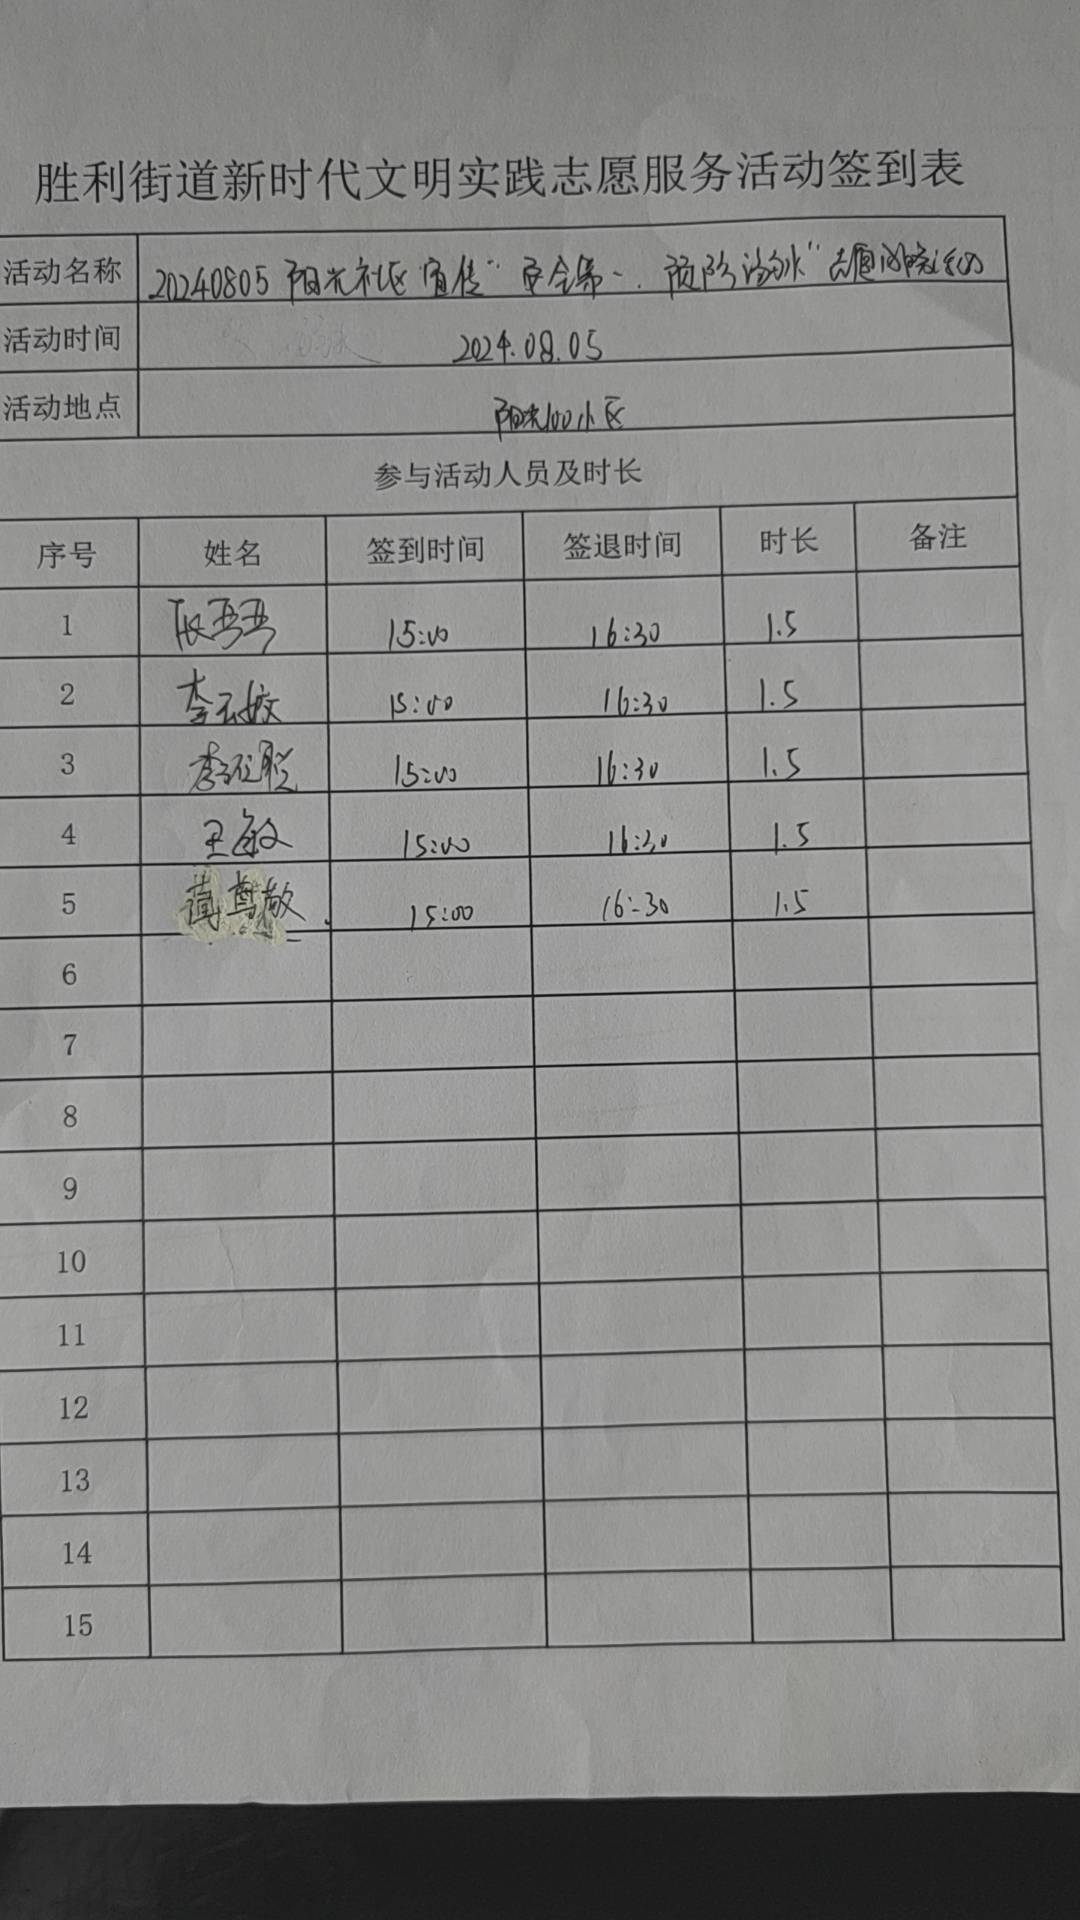 胜利街道新时代文明实践志愿服务活动签到表
活动名称 20240805 阳光社区宣传“安全第一、预防溺水”志愿服务活动
活动时间 2024.08.05
活动地点 阳光100小区
参与活动人员及时长
序号 姓名 签到时间 签退时间 时长 备注
1 15:00 16:30 1.5
2 李云姣 15:00 16:30 1.5
3 15:00 16:30 1.5
4 王敏 15:00 16:30 1.5
5 15:00 16:30 1.5
6
7
8
9
10
11
12
13
14
15